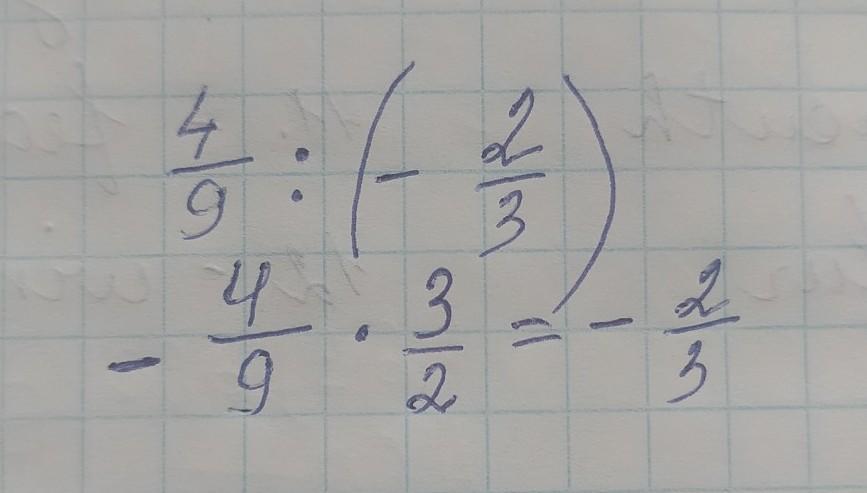 4/9 : (- 2/3)
- 4/9 · 3/2 = - 2/3